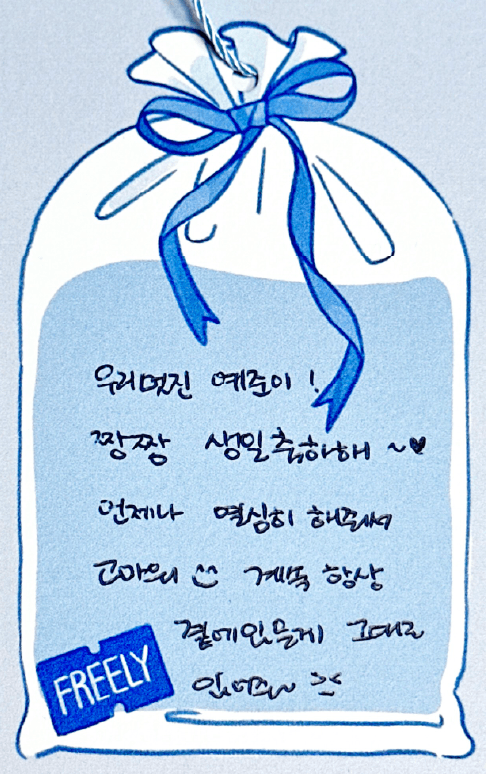 우리멋진 예준이!
짱짱 생일축하해 ~♥
언제나 열심히 해줘서
고마워 계쏙 항상
곁에있을게 그대로
있어줘~ >:<
FREELY